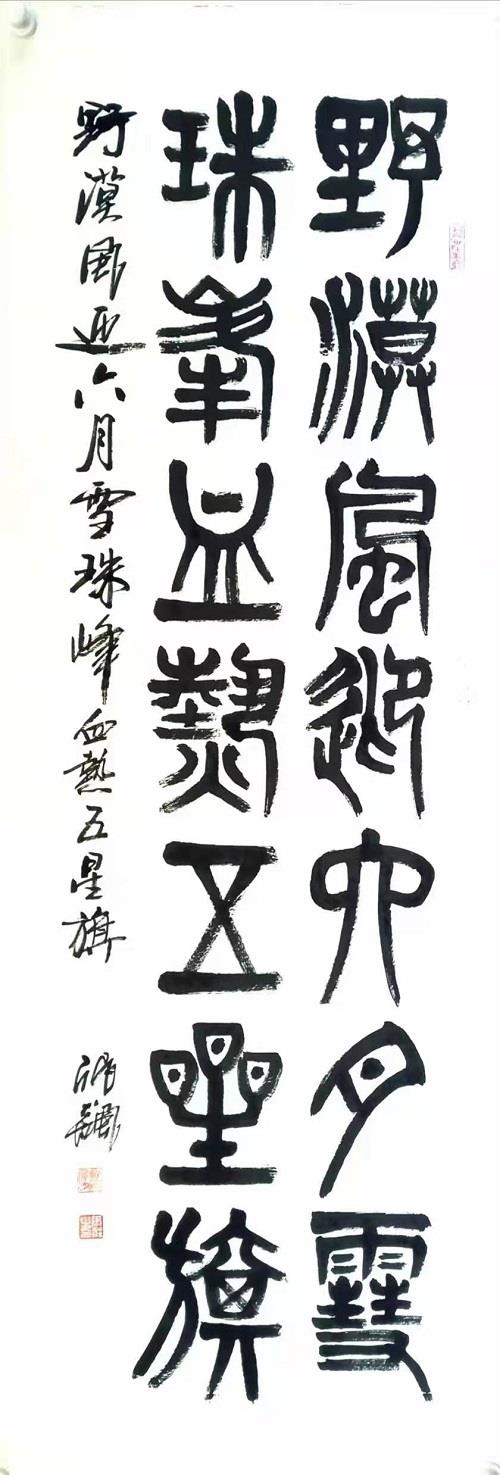 野漠風迎六月雪
珠峯血熱五星旗
野漠風迎六月雪珠峰血熱五星旗